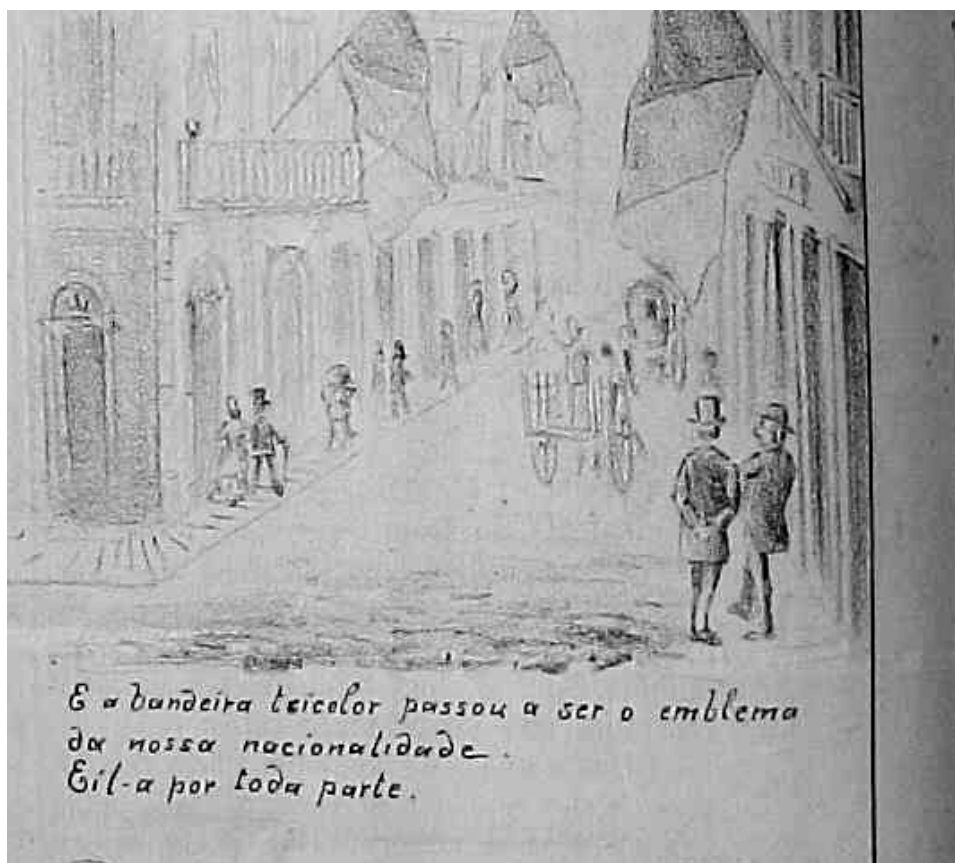 E a bandeira tricolor passou a ser o emblema
da nossa nacionalidade.
Eil-a por toda parte.